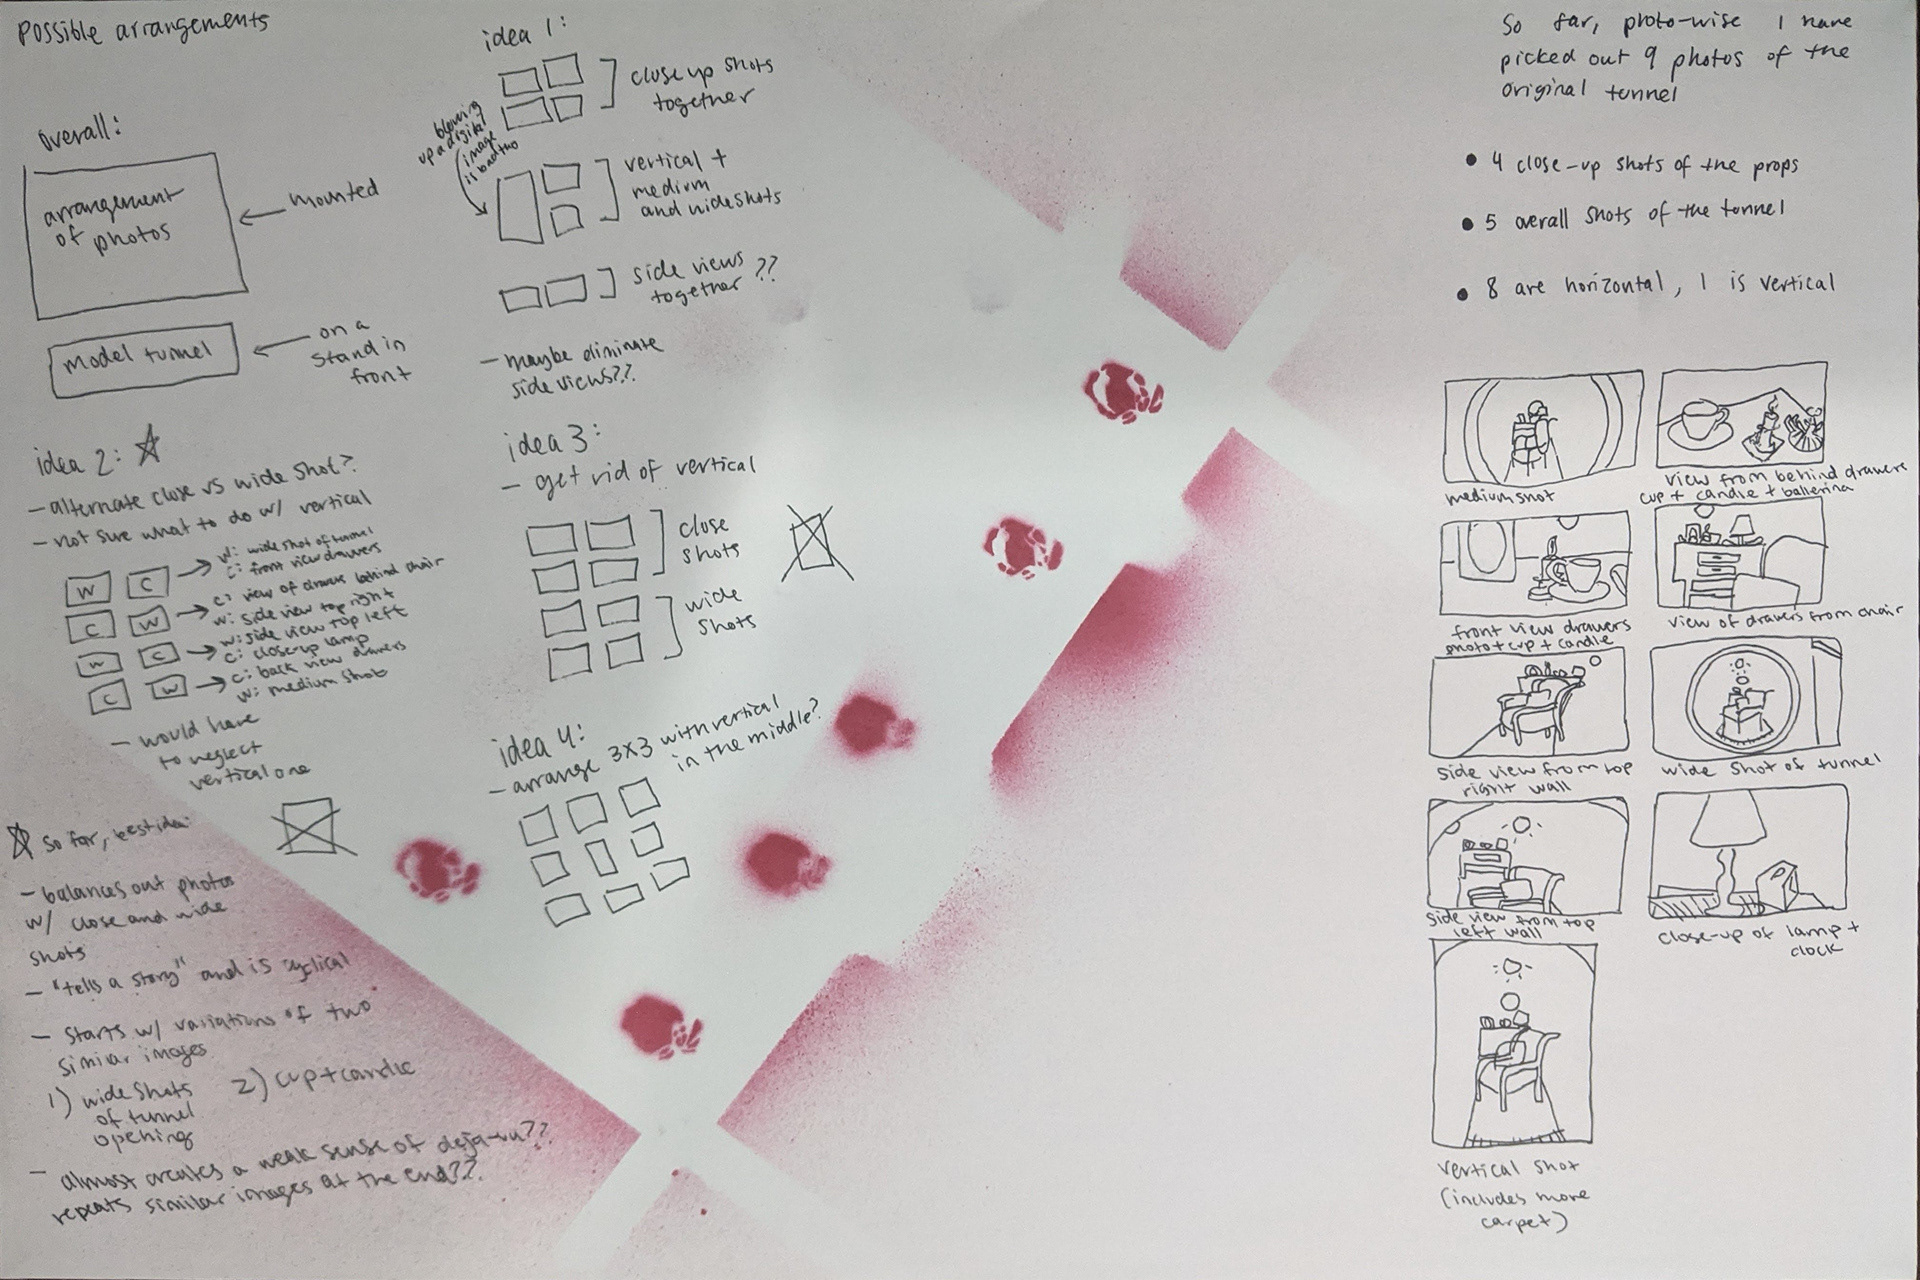 possible arrangements
overall:
arrangement
of photos
mounted
model tunnel
on a
stand in
front
idea 1:
close up shots
together
blowing
up a digital
image
is bad tho
vertical +
medium
and wide shots
side views
together ??
- maybe eliminate
side views??
idea 2: ☆
- alternate close vs wide shot?
- not sure what to do w/ vertical
W C
w: wide shot of tunnel
c: front view drawers
C W
c: view of drawers behind chair
w: side view top right
W C
w: side view top left
c: close-up lamp
C W
c: back view drawers
w: medium shot
- would have
to neglect
vertical one
☆ so far, best idea:
- balances out photos
w/ close and wide
shots
- "tells a story" and is cyclical
- starts w/ variations of two
similar images
1) wide shots
of tunnel
opening
2) cup + candle
- almost creates a weak sense of deja-vu??
repeats similar images at the end??
idea 3:
- get rid of vertical
close
shots
wide
shots
idea 4:
- arrange 3x3 with vertical
in the middle?
So far, photo-wise I have
picked out 9 photos of the
original tunnel
• 4 close-up shots of the props
• 5 overall shots of the tunnel
• 8 are horizontal, 1 is vertical
medium shot
view from behind drawers
cup + candle + ballerina
front view drawers
photo + cup + candle
view of drawers from chair
side view from top
right wall
wide shot of tunnel
side view from top
left wall
close-up of lamp +
clock
vertical shot
(includes more
carpet)